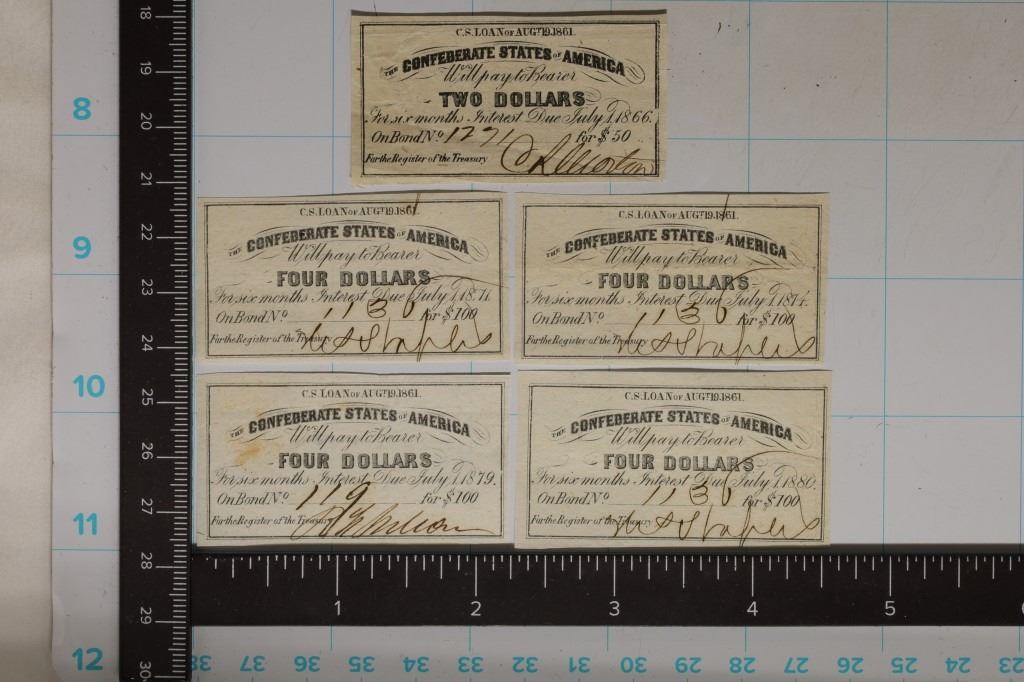 C.S. LOAN OF AUGT. 19. 1861.
THE CONFEDERATE STATES OF AMERICA
Will pay to Bearer
TWO DOLLARS
For six months Interest Due July 1, 1866.
On Bond No. 1271 for $50
For the Register of the Treasury
C.S. LOAN OF AUGT. 19. 1861.
THE CONFEDERATE STATES OF AMERICA
Will pay to Bearer
FOUR DOLLARS
For six months Interest Due July 1, 1871.
On Bond No. 1136 for $100
For the Register of the Treasury
C.S. LOAN OF AUGT. 19. 1861.
THE CONFEDERATE STATES OF AMERICA
Will pay to Bearer
FOUR DOLLARS
For six months Interest Due July 1, 1874.
On Bond No. 1136 for $100
For the Register of the Treasury
C.S. LOAN OF AUGT. 19. 1861.
THE CONFEDERATE STATES OF AMERICA
Will pay to Bearer
FOUR DOLLARS
For six months Interest Due July 1, 1879.
On Bond No. 119 for $100
For the Register of the Treasury
C.S. LOAN OF AUGT. 19. 1861.
THE CONFEDERATE STATES OF AMERICA
Will pay to Bearer
FOUR DOLLARS
For six months Interest Due July 1, 1880.
On Bond No. 1136 for $100
For the Register of the Treasury
8
9
10
11
12
18
19
20
21
22
23
24
25
26
27
28
29
30
1 2 3 4 5 6
38 37 36 35 34 33 32 31 30 29 28 27 26 25 24 23